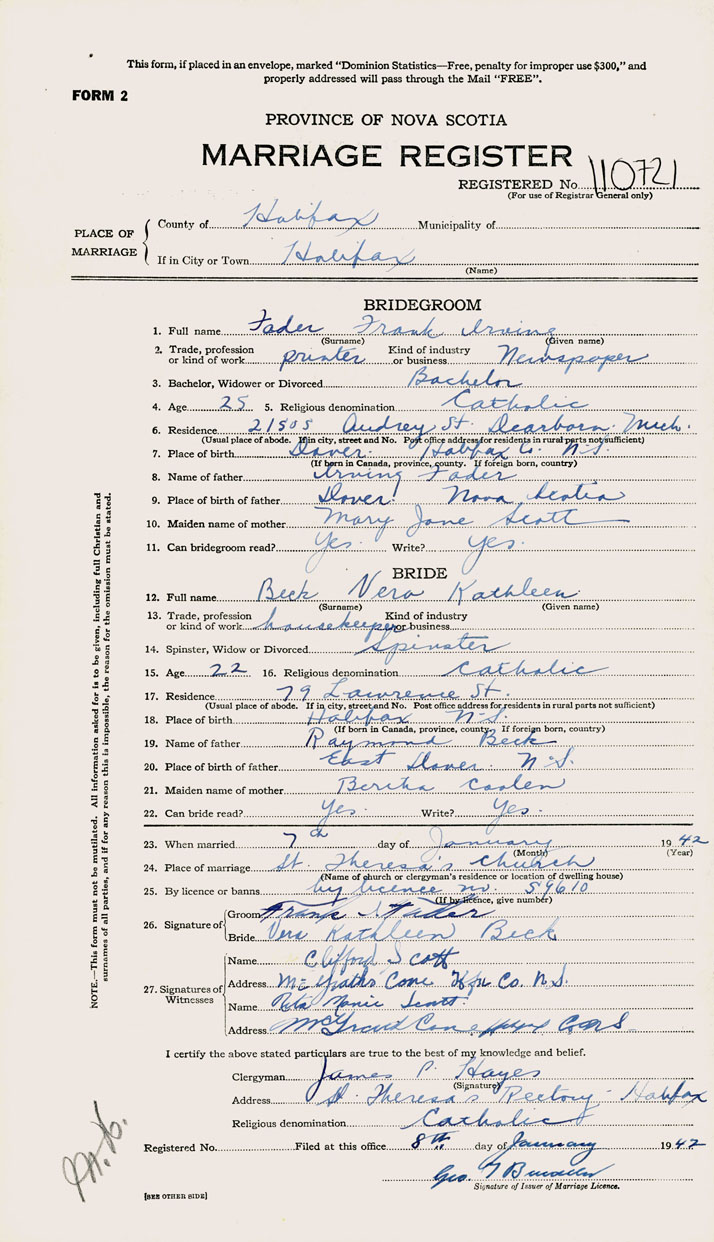 This form, if placed in an envelope, marked "Dominion Statistics—Free, penalty for improper use $300," and
properly addressed will pass through the Mail "FREE".
FORM 2
PROVINCE OF NOVA SCOTIA
MARRIAGE REGISTER
REGISTERED No. 110721
(For use of Registrar General only)
PLACE OF MARRIAGE
County of Halifax Municipality of
If in City or Town Halifax
(Name)
BRIDEGROOM
1. Full name Fader Frank Irving
(Surname) (Given name)
2. Trade, profession or kind of work printer Kind of industry or business Newspaper
3. Bachelor, Widower or Divorced Bachelor
4. Age 25 5. Religious denomination Catholic
6. Residence 21505 Audrey St. Dearborn. Mich.
(Usual place of abode. If in city, street and No. Post office address for residents in rural parts not sufficient)
7. Place of birth Dover. Halifax Co. N.S.
(If born in Canada, province, county. If foreign born, country)
8. Name of father Irving Fader
9. Place of birth of father Dover. Nova Scotia
10. Maiden name of mother Mary Jane Scott
11. Can bridegroom read? Yes. Write? Yes.
BRIDE
12. Full name Beck Vera Kathleen
(Surname) (Given name)
13. Trade, profession or kind of work housekeeper Kind of industry or business
14. Spinster, Widow or Divorced Spinster
15. Age 22 16. Religious denomination Catholic
17. Residence 79 Lawrence St.
(Usual place of abode. If in city, street and No. Post office address for residents in rural parts not sufficient)
18. Place of birth Halifax N.S.
(If born in Canada, province, county. If foreign born, country)
19. Name of father Raymond Beck
20. Place of birth of father East Dover. N.S.
21. Maiden name of mother Bertha Coolen
22. Can bride read? Yes. Write? Yes.
23. When married 7th day of January 1942
(Month) (Year)
24. Place of marriage St. Theresa's Church
(Name of church or clergyman's residence or location of dwelling house)
25. By licence or banns by licence no. 59610
(If by licence, give number)
26. Signature of
Groom Frank I. Fader
Bride Vera Kathleen Beck
27. Signatures of Witnesses
Name Clifford Scott
Address McGraths Cove Hfx Co. N.S.
Name Rita Marie Scott
Address McGrath Cove
I certify the above stated particulars are true to the best of my knowledge and belief.
Clergyman James P. Hayes
(Signature)
Address St. Theresa's Rectory - Halifax
Religious denomination Catholic
Registered No. Filed at this office 8th day of January 1942
Geo.
Signature of Issuer of Marriage Licence.
[SEE OTHER SIDE]
NOTE.—This form must not be mutilated. All information asked for is to be given, including full Christian and
surnames of all parties, and if for any reason this is impossible, the reason for the omission must be stated.